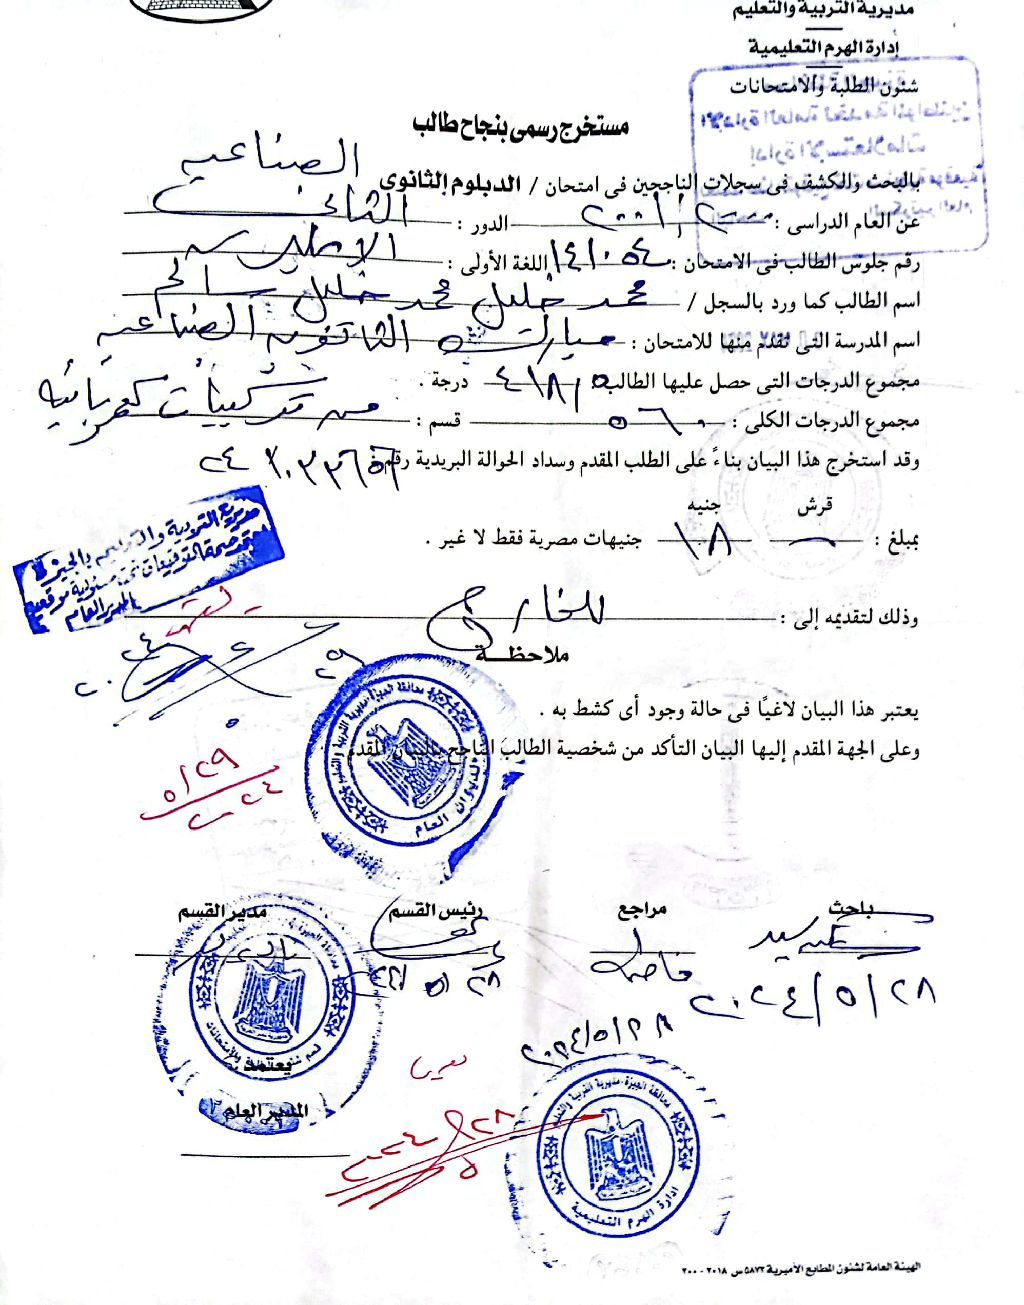 مديرية التربية والتعليم
إدارة الهرم التعليمية
شئون الطلبة والامتحانات
مستخرج رسمى بنجاح طالب
بالبحث والكشف فى سجلات الناجحين فى امتحان / الدبلوم الثانوى الصناعية
عن العام الدراسى : ٢٠٠٠/٢٠٠١ الدور : الثانى
رقم جلوس الطالب فى الامتحان : ١٤١٠٥٤ اللغة الأولى :
اسم الطالب كما ورد بالسجل / محمد خليل محمد خليل سالم
اسم المدرسة التى تقدم منها للامتحان : مبارك الثانوية الصناعية
مجموع الدرجات التى حصل عليها الطالب ٤١٨/٥ درجة .
مجموع الدرجات الكلى : ٥٦٠ قسم : تركيبات كهربائية
وقد استخرج هذا البيان بناءً على الطلب المقدم وسداد الحوالة البريدية رقم
قرش جنيه
بمبلغ : ١٨ جنيهات مصرية فقط لا غير .
مديرية التربية والتعليم بالجيزة
المدير العام
وذلك لتقديمه إلى : للخارج
ملاحظة
يعتبر هذا البيان لاغيًا فى حالة وجود أى كشط به .
وعلى الجهة المقدم إليها البيان التأكد من شخصية الطالب الناجح بالبيان المقدم
محافظة الجيزة مديرية التربية والتعليم
الديوان العام
٥/٢٩
٢٠٢٤
باحث مراجع رئيس القسم مدير القسم
سيد
٢٠٢٤/٥/٢٨
٢٠٢٤/٥/٢٨
يعتمد
المدير العام
محافظة الجيزة مديرية التربية والتعليم
إدارة الهرم التعليمية
الهيئة العامة لشئون المطابع الأميرية ٥٨٧٢ س ٢٠١٨ - ٢٠٠